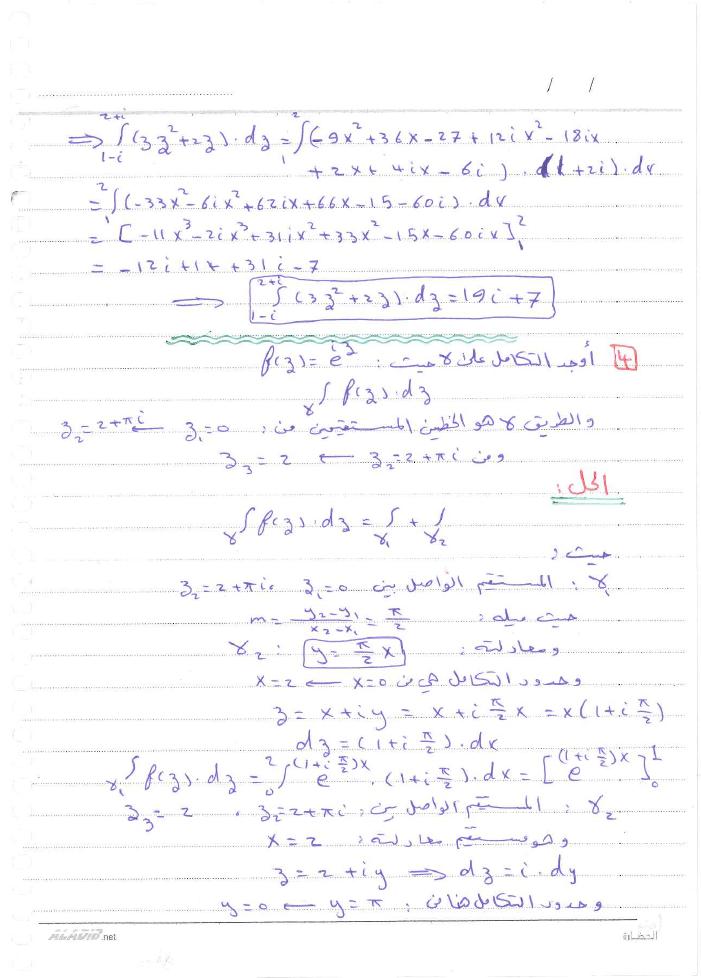 / /
⇒ ∫_{1-i}^{2+i} (3z²+2z)·dz = ∫_1^2 (-9x²+36x-27+12ix²-18ix
+2x+4ix-6i)·(1+2i)·dx
= ∫_1^2 (-33x²-6ix²+62ix+66x-15-60i)·dx
= [-11x³-2ix³+31ix²+33x²-15x-60ix]_1^2
= -12i+14+31i-7
⇒ ∫_{1-i}^{2+i} (3z²+2z)·dz = 19i+7
4 أوجد التكامل على γ حيث: f(z) = e^z
∫_γ f(z)·dz
والطريق γ هو الخطين المستقيمين من: z₁=0 ← z₂=2+πi
ومن z₂=2+πi ← z₃=2
الحل:
∫_γ f(z)·dz = ∫_{γ₁} + ∫_{γ₂}
حيث:
γ₁: المستقيم الواصل بين z₁=0 , z₂=2+πi
حيث ميله: m = (y₂-y₁)/(x₂-x₁) = π/2
ومعادلته: γ₂: y = π/2 x
وحدود التكامل هي من x=0 ← x=2
z = x+iy = x+i π/2 x = x(1+i π/2)
dz = (1+i π/2)·dx
∫_{γ₁} f(z)·dz = ∫_0^2 e^{(1+i π/2)x}·(1+i π/2)·dx = [e^{(1+i π/2)x}]_0^1
γ₂: المستقيم الواصل بين: z₂=2+πi , z₃=2
وهو مستقيم معادلته: x=2
z = 2+iy ⇒ dz = i·dy
وحدود التكامل هنا من: y=π ← y=0
ALADIB.net
الحضارة